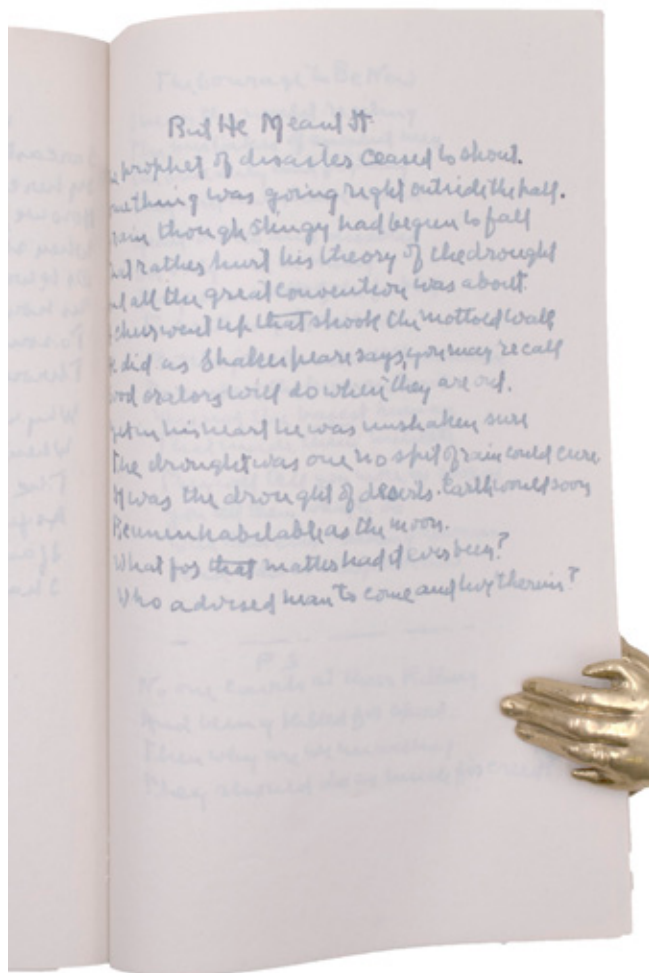 But He Meant It
prophet of disaster ceased to shout.
mething was going right outside the hall.
rain though stingy had begun to fall
at rather hurt his theory of the drought
d all the great convention was about.
cheer went up that shook the mottoed wall
did as Shakespeare says, you may recall
ood orators will do when they are out.
Yet in his heart he was unshaken sure
The drought was one no spit of rain could cure.
It was the drought of deserts. Earth would soon
Be uninhabitable as the moon.
What for that matter had it ever been?
Who advised man to come and live therein?